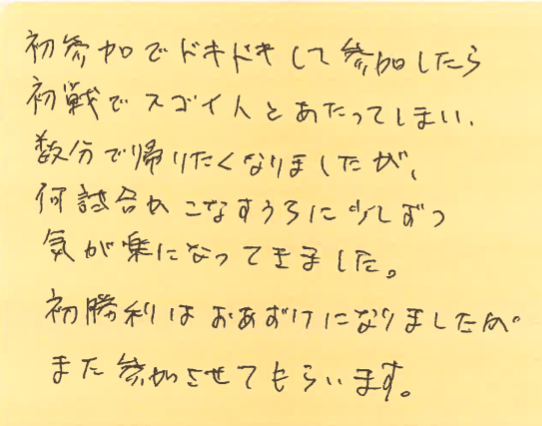 初参加でドキドキして参加したら
初戦でスゴイ人とあたってしまい、
数分で帰りたくなりましたが、
何試合かこなすうちに少しずつ
気が楽になってきました。
初勝利はおあずけになりましたが
また参加させてもらいます。